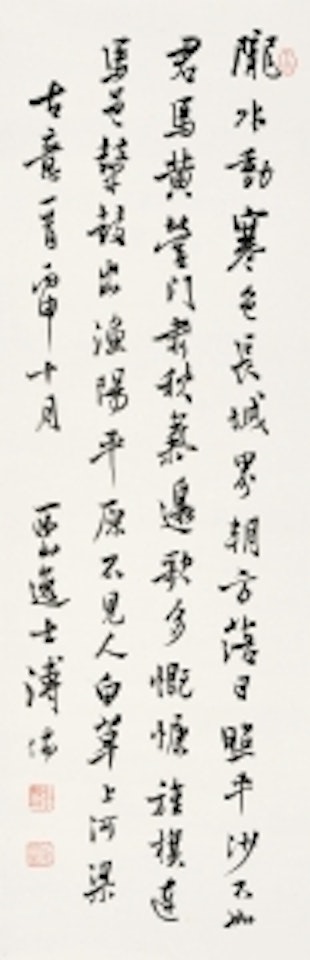 隴水動寒色長城界朔方落日照平沙不如
君馬黃營門肅秋氣邊歌多慨慷旌旗連
馬邑鼙鼓出漁陽平原不見人白草上河梁
古意一首丙申十月 西山逸士溥儒